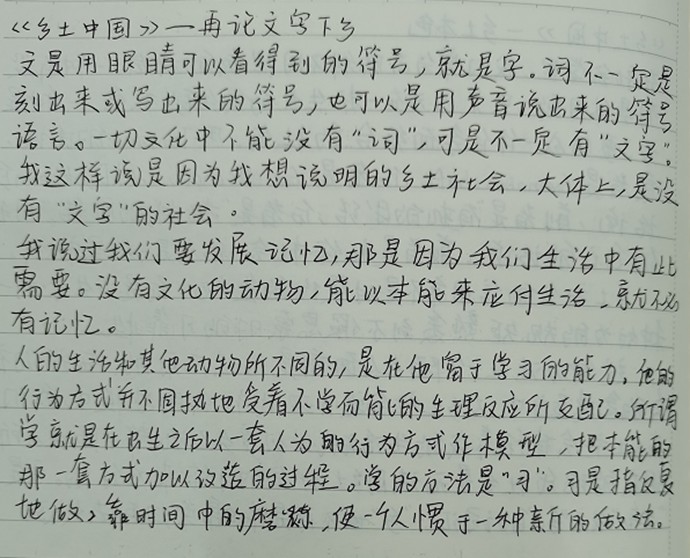 《乡土中国》——再论文字下乡
文是用眼睛可以看得到的符号，就是字。词不一定是
刻出来或写出来的符号，也可以是用声音说出来的符号
语言。一切文化中不能没有“词”，可是不一定有“文字”。
我这样说是因为我想说明的乡土社会，大体上，是没
有“文字”的社会。
我说过我们要发展记忆，那是因为我们生活中有此
需要。没有文化的动物，能以本能来应付生活，就不必
有记忆。
人的生活和其他动物所不同的，是在他富于学习的能力，他的
行为方式并不固执地受着不学而能的生理反应所支配。所谓
学就是在出生之后以一套人为的行为方式作模型，把本能的
那一套方式加以改造的过程。学的方法是“习”。习是指反复
地做，靠时间中的磨练，使一个人惯于一种新的做法。